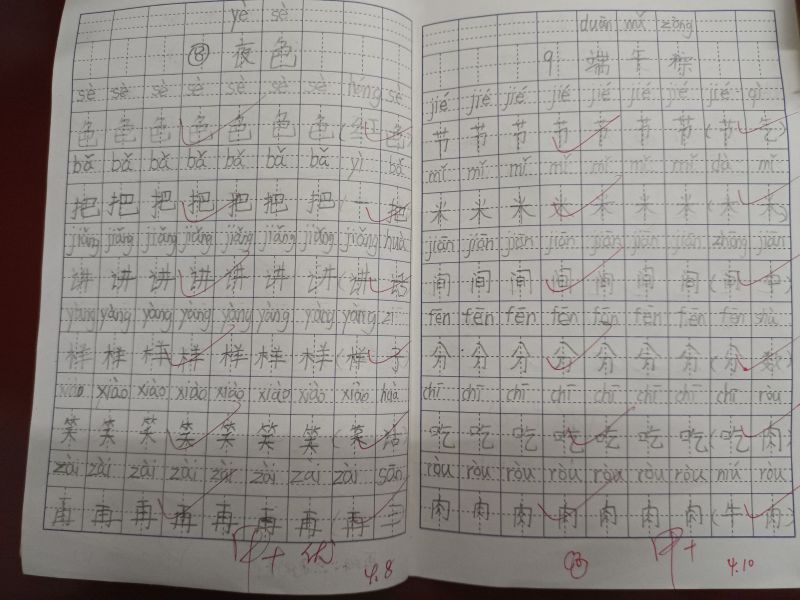 yè sè
⑧ 夜 色
sè sè sè sè sè sè sè hóng sè
色 色 色 色 色 色 色 (红 色
bǎ bǎ bǎ bǎ bǎ bǎ bǎ yì bǎ
把 把 把 把 把 把 把 (一 把
jiǎng jiǎng jiǎng jiǎng jiǎng jiǎng jiǎng jiǎng huà
讲 讲 讲 讲 讲 讲 讲 (讲 话
yàng yàng yàng yàng yàng yàng yàng yàng zi
样 样 样 样 样 样 样 (样 子
xiào xiào xiào xiào xiào xiào xiào xiào huà
笑 笑 笑 笑 笑 笑 笑 (笑 话
zài zài zài zài zài zài zài zài sān
再 再 再 再 再 再 再 (再 三
甲+ 优 4.8
duān wǔ zòng
9 端 午 粽
jié jié jié jié jié jié jié jié qì
节 节 节 节 节 节 节 (节 气)
mǐ mǐ mǐ mǐ mǐ mǐ mǐ dà mǐ
米 米 米 米 米 米 米
jiān jiān jiān jiān jiān jiān jiān zhōng jiān
间 间 间 间 间 间 间 (间 中)
fēn fēn fēn fēn fēn fēn fēn fēn shù
分 分 分 分 分 分 分 (分 数)
chī chī chī chī chī chī chī chī ròu
吃 吃 吃 吃 吃 吃 吃 (吃 肉)
ròu ròu ròu ròu ròu ròu ròu niú ròu
肉 肉 肉 肉 肉 肉 肉 (牛 肉)
甲+ 4.10